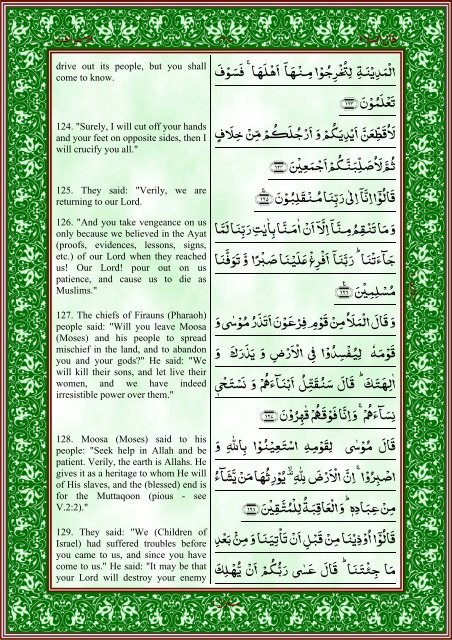 drive out its people, but you shall
come to know.
124. "Surely, I will cut off your hands
and your feet on opposite sides, then I
will crucify you all."
125. They said: "Verily, we are
returning to our Lord.
126. "And you take vengeance on us
only because we believed in the Ayat
(proofs, evidences, lessons, signs,
etc.) of our Lord when they reached
us! Our Lord! pour out on us
patience, and cause us to die as
Muslims."
127. The chiefs of Firauns (Pharaoh)
people said: "Will you leave Moosa
(Moses) and his people to spread
mischief in the land, and to abandon
you and your gods?" He said: "We
will kill their sons, and let live their
women, and we have indeed
irresistible power over them."
128. Moosa (Moses) said to his
people: "Seek help in Allah and be
patient. Verily, the earth is Allahs. He
gives it as a heritage to whom He will
of His slaves, and the (blessed) end is
for the Muttaqoon (pious - see
V.2:2)."
129. They said: "We (Children of
Israel) had suffered troubles before
you came to us, and since you have
come to us." He said: "It may be that
your Lord will destroy your enemy
الْمَدِيْنَةِ لِتُخْرِجُوْا مِنْهَاۤ اَهْلَهَا ۚ فَسَوْفَ
تَعْلَمُوْنَ ﴿۱۲۳﴾
لَاُقَطِّعَنَّ اَيْدِيَكُمْ وَ اَرْجُلَكُمْ مِّنْ خِلَافٍ
ثُمَّ لَاُصَلِّبَنَّكُمْ اَجْمَعِيْنَ ﴿۱۲۴﴾
قَالُوْۤا اِنَّاۤ اِلٰى رَبِّنَا مُنْقَلِبُوْنَ ﴿۱۲۵﴾
وَ مَا تَنْقِمُ مِنَّاۤ اِلَّاۤ اَنْ اٰمَنَّا بِاٰيٰتِ رَبِّنَا لَمَّا
جَآءَتْنَا ؕ رَبَّنَاۤ اَفْرِغْ عَلَيْنَا صَبْرًا وَّ تَوَفَّنَا
مُسْلِمِيْنَ ﴿۱۲۶﴾
وَ قَالَ الْمَلَاُ مِنْ قَوْمِ فِرْعَوْنَ اَتَذَرُ مُوْسٰى وَ
قَوْمَهٗ لِيُفْسِدُوْا فِى الْاَرْضِ وَ يَذَرَكَ وَ
اٰلِهَتَكَ ؕ قَالَ سَنُقَتِّلُ اَبْنَآءَهُمْ وَ نَسْتَحْىٖ
نِسَآءَهُمْ ۚ وَ اِنَّا فَوْقَهُمْ قٰهِرُوْنَ ﴿۱۲۷﴾
قَالَ مُوْسٰى لِقَوْمِهِ اسْتَعِيْنُوْا بِاللّٰهِ وَ
اصْبِرُوْا ۚ اِنَّ الْاَرْضَ لِلّٰهِ ۙ يُوْرِثُهَا مَنْ يَّشَآءُ
مِنْ عِبَادِهٖ ؕ وَ الْعَاقِبَةُ لِلْمُتَّقِيْنَ ﴿۱۲۸﴾
قَالُوْۤا اُوْذِيْنَا مِنْ قَبْلِ اَنْ تَاْتِيَنَا وَ مِنْۢ بَعْدِ
مَا جِئْتَنَا ؕ قَالَ عَسٰى رَبُّكُمْ اَنْ يُّهْلِكَ